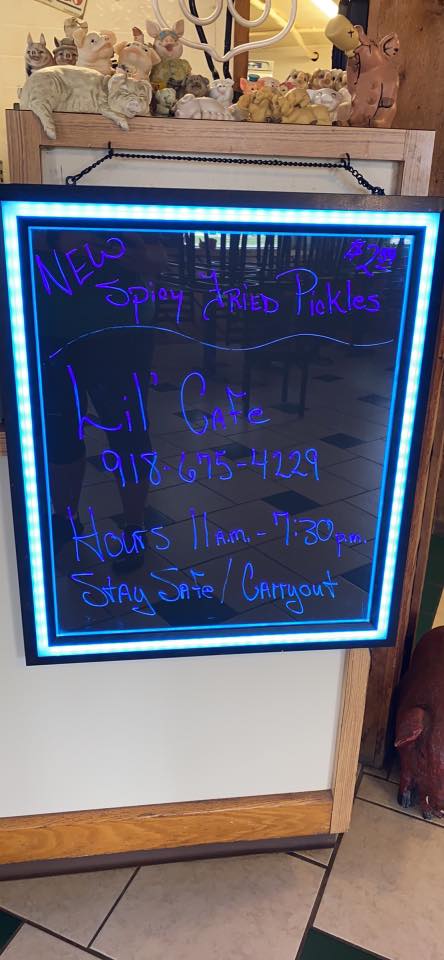 NEW
Spicy Fried Pickles
Lil' Cafe
918-675-4229
Hours 11 a.m. - 7:30 p.m.
Stay Safe / Carryout